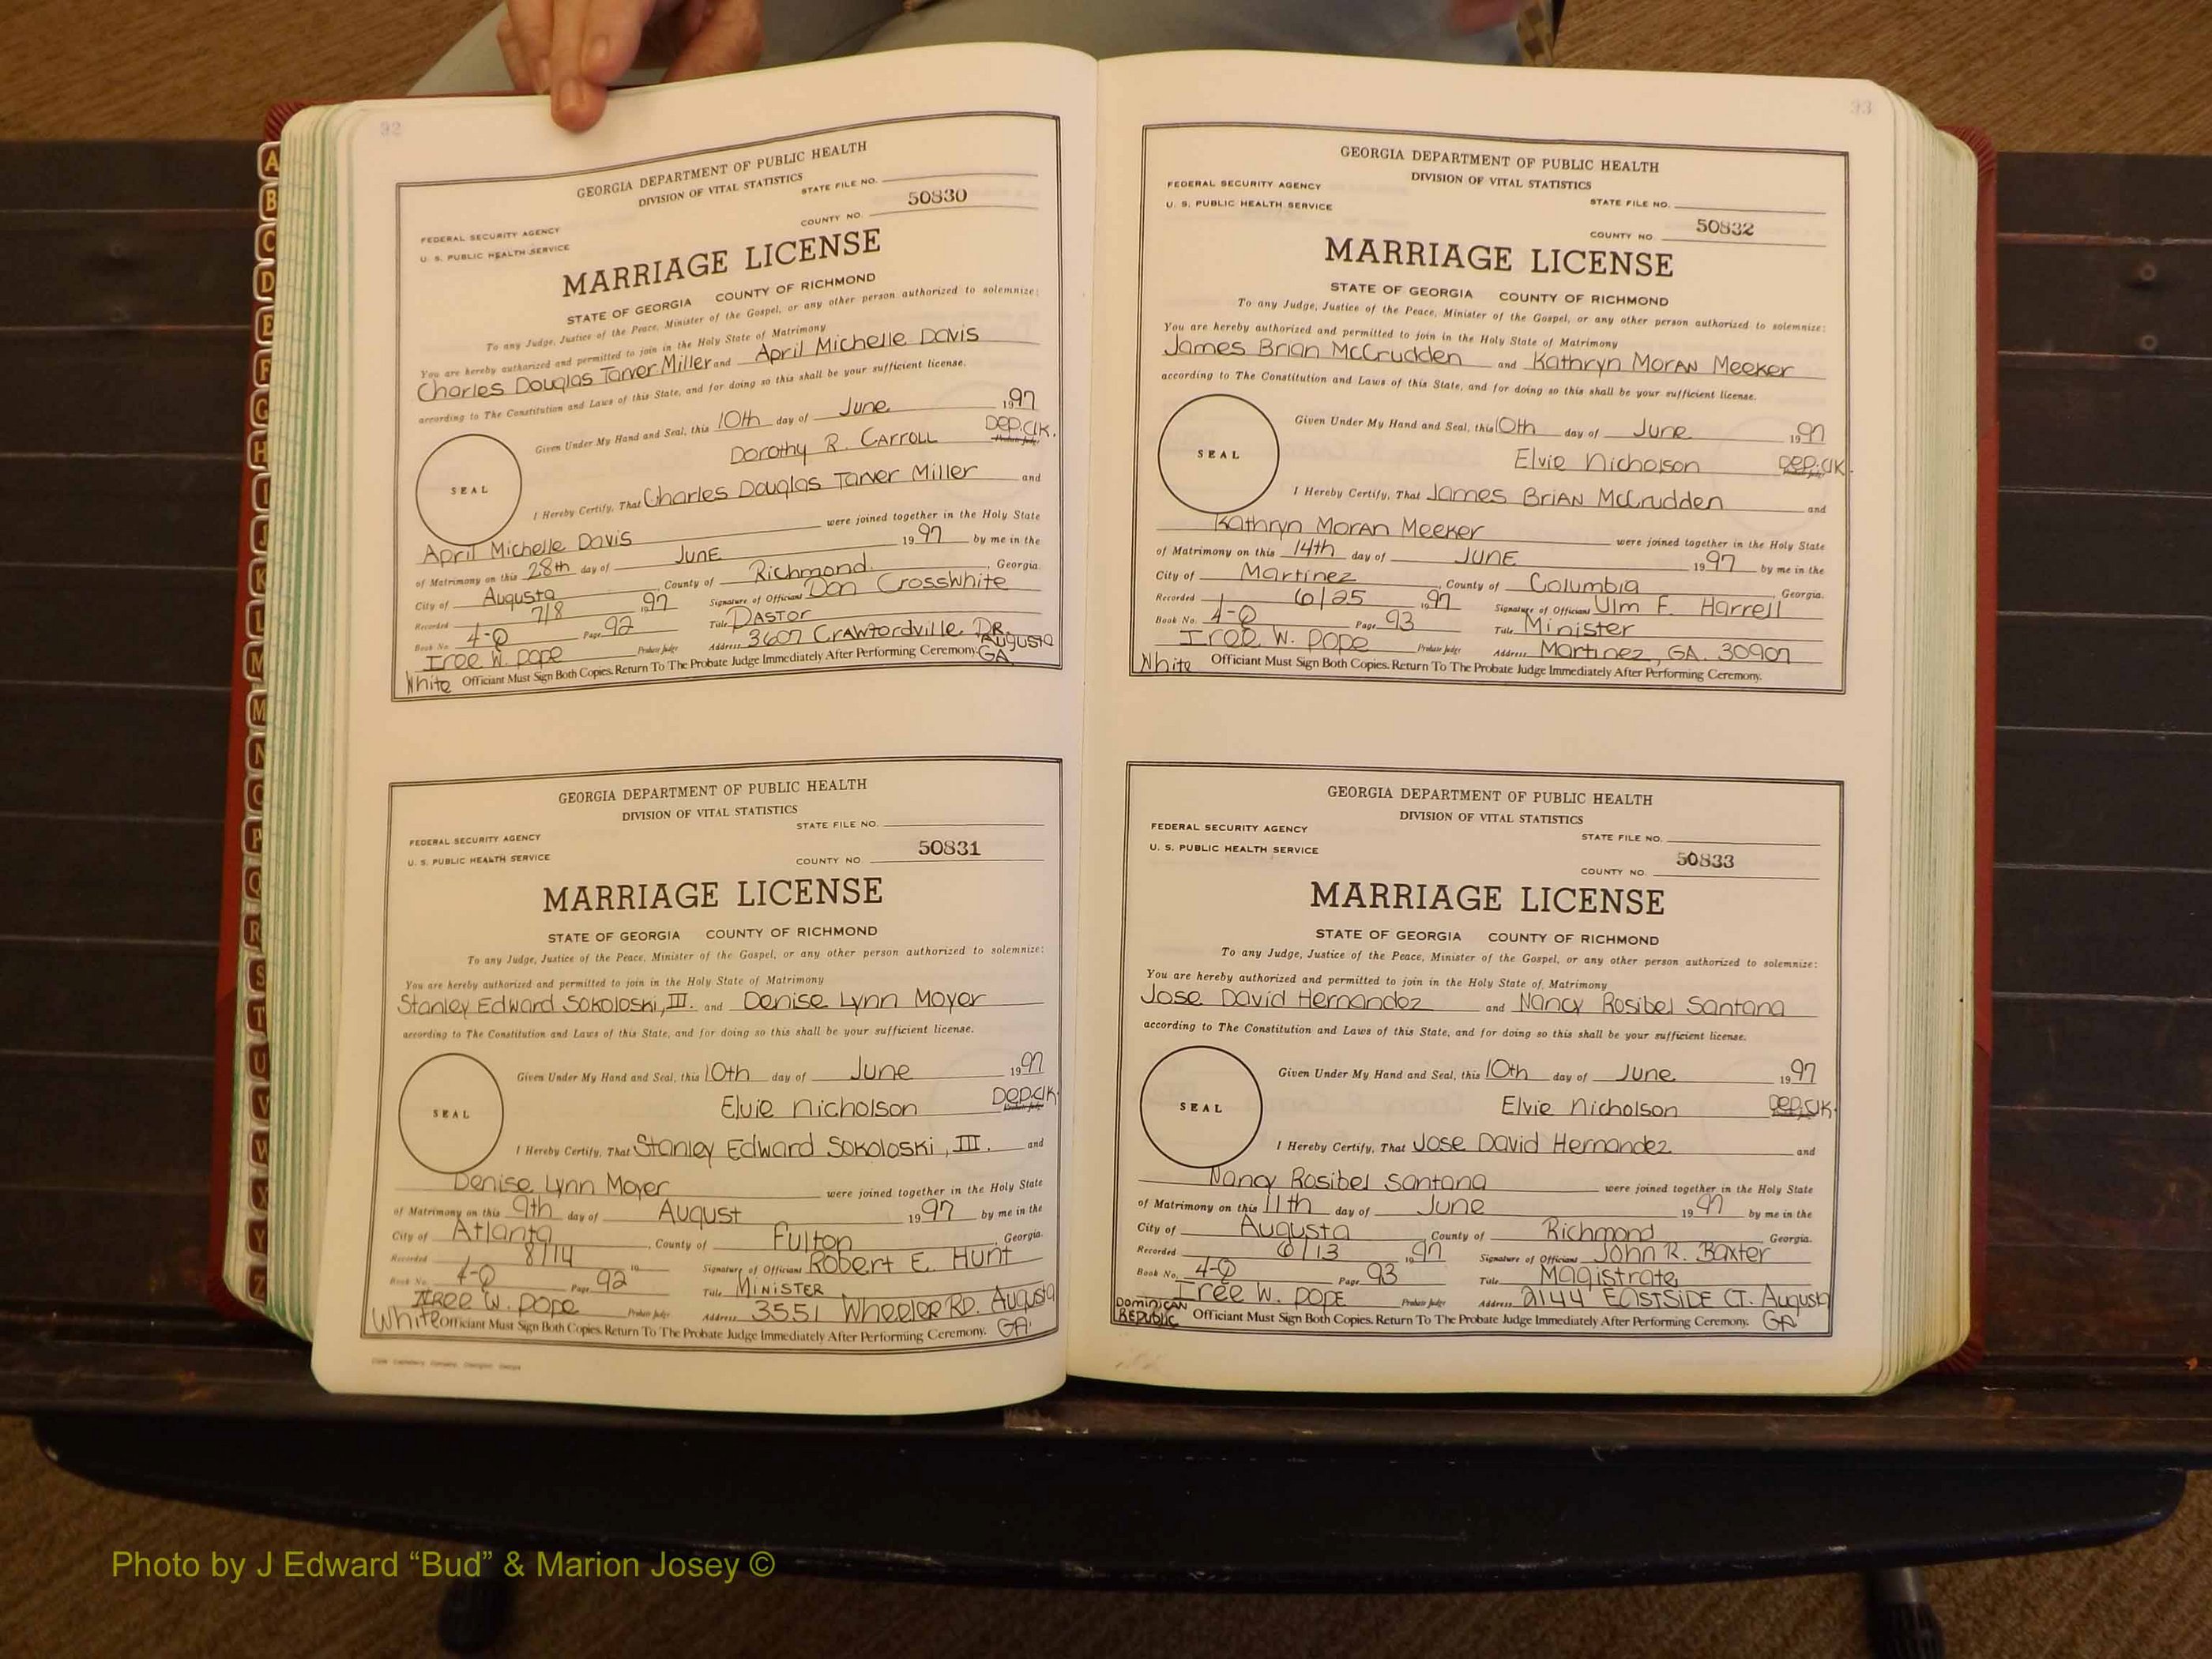 92
GEORGIA DEPARTMENT OF PUBLIC HEALTH
DIVISION OF VITAL STATISTICS
STATE FILE NO.
50830
COUNTY NO.
FEDERAL SECURITY AGENCY
U. S. PUBLIC HEALTH SERVICE
MARRIAGE LICENSE
STATE OF GEORGIA COUNTY OF RICHMOND
To any Judge, Justice of the Peace, Minister of the Gospel, or any other person authorized to solemnize:
You are hereby authorized and permitted to join in the Holy State of Matrimony
Charles Douglas Tarver Miller and April Michelle Davis
according to The Constitution and Laws of this State, and for doing so this shall be your sufficient license.
Given Under My Hand and Seal, this 10th day of June 1997
Dorothy R. Carroll Dep. Clk.
SEAL
I Hereby Certify, That Charles Douglas Tarver Miller and
April Michelle Davis were joined together in the Holy State
of Matrimony on this 28th day of June 1997 by me in the
City of Augusta, County of Richmond, Georgia.
Recorded 7/8 1997 Signature of Officiant Don Crosswhite
Book No. 4-Q Page 92 Title Pastor
Iree W. Pope Probate Judge Address 3607 Crawfordville DR. Augusta GA
White Officiant Must Sign Both Copies. Return To The Probate Judge Immediately After Performing Ceremony.
GEORGIA DEPARTMENT OF PUBLIC HEALTH
DIVISION OF VITAL STATISTICS
STATE FILE NO.
FEDERAL SECURITY AGENCY
U. S. PUBLIC HEALTH SERVICE
COUNTY NO 50831
MARRIAGE LICENSE
STATE OF GEORGIA COUNTY OF RICHMOND
To any Judge, Justice of the Peace, Minister of the Gospel, or any other person authorized to solemnize:
You are hereby authorized and permitted to join in the Holy State of Matrimony
Stanley Edward Sokoloski, III. and Denise Lynn Moyer
according to The Constitution and Laws of this State, and for doing so this shall be your sufficient license.
Given Under My Hand and Seal, this 10th day of June 1997
Elvie Nicholson Dep. Clk.
SEAL
I Hereby Certify, That Stanley Edward Sokoloski, III. and
Denise Lynn Moyer were joined together in the Holy State
of Matrimony on this 9th day of August 1997 by me in the
City of Atlanta, County of Fulton, Georgia.
Recorded 8/14 19 Signature of Officiant Robert E. Hunt
Book No. 4-Q Page 92 Title Minister
Iree W. Pope Probate Judge Address 3551 Wheeler RD. Augusta GA.
White Officiant Must Sign Both Copies. Return To The Probate Judge Immediately After Performing Ceremony.
93
GEORGIA DEPARTMENT OF PUBLIC HEALTH
DIVISION OF VITAL STATISTICS
FEDERAL SECURITY AGENCY
U. S. PUBLIC HEALTH SERVICE
STATE FILE NO.
COUNTY NO. 50832
MARRIAGE LICENSE
STATE OF GEORGIA COUNTY OF RICHMOND
To any Judge, Justice of the Peace, Minister of the Gospel, or any other person authorized to solemnize:
You are hereby authorized and permitted to join in the Holy State of Matrimony
James Brian McCrudden and Kathryn Moran Meeker
according to The Constitution and Laws of this State, and for doing so this shall be your sufficient license.
Given Under My Hand and Seal, this 10th day of June 1997
Elvie Nicholson Dep. Clk.
SEAL
I Hereby Certify, That James Brian McCrudden and
Kathryn Moran Meeker were joined together in the Holy State
of Matrimony on this 14th day of June 1997 by me in the
City of Martinez, County of Columbia, Georgia.
Recorded 6/25 1997 Signature of Officiant Ulm F. Harrell
Book No. 4-Q Page 93 Title Minister
Iree W. Pope Probate Judge Address Martinez, GA. 30907
White Officiant Must Sign Both Copies. Return To The Probate Judge Immediately After Performing Ceremony.
GEORGIA DEPARTMENT OF PUBLIC HEALTH
DIVISION OF VITAL STATISTICS
FEDERAL SECURITY AGENCY
U. S. PUBLIC HEALTH SERVICE
STATE FILE NO.
COUNTY NO. 50833
MARRIAGE LICENSE
STATE OF GEORGIA COUNTY OF RICHMOND
To any Judge, Justice of the Peace, Minister of the Gospel, or any other person authorized to solemnize:
You are hereby authorized and permitted to join in the Holy State of Matrimony
Jose David Hernandez and Nancy Rosibel Santana
according to The Constitution and Laws of this State, and for doing so this shall be your sufficient license.
Given Under My Hand and Seal, this 10th day of June 1997
Elvie Nicholson Dep. Clk.
SEAL
I Hereby Certify, That Jose David Hernandez and
Nancy Rosibel Santana were joined together in the Holy State
of Matrimony on this 11th day of June 1997 by me in the
City of Augusta, County of Richmond, Georgia.
Recorded 6/13 1997 Signature of Officiant John R. Baxter
Book No. 4-Q Page 93 Title Magistrate
Iree W. Pope Probate Judge Address 2144 Eastside CT. Augusta GA
Dominican Republic Officiant Must Sign Both Copies. Return To The Probate Judge Immediately After Performing Ceremony.
A
B
C
D
E
F
G
H
I
J
K
L
M
M
N
O
P
Q
R
S
T
U
V
W
X
Y
Z
Photo by J Edward “Bud” & Marion Josey ©